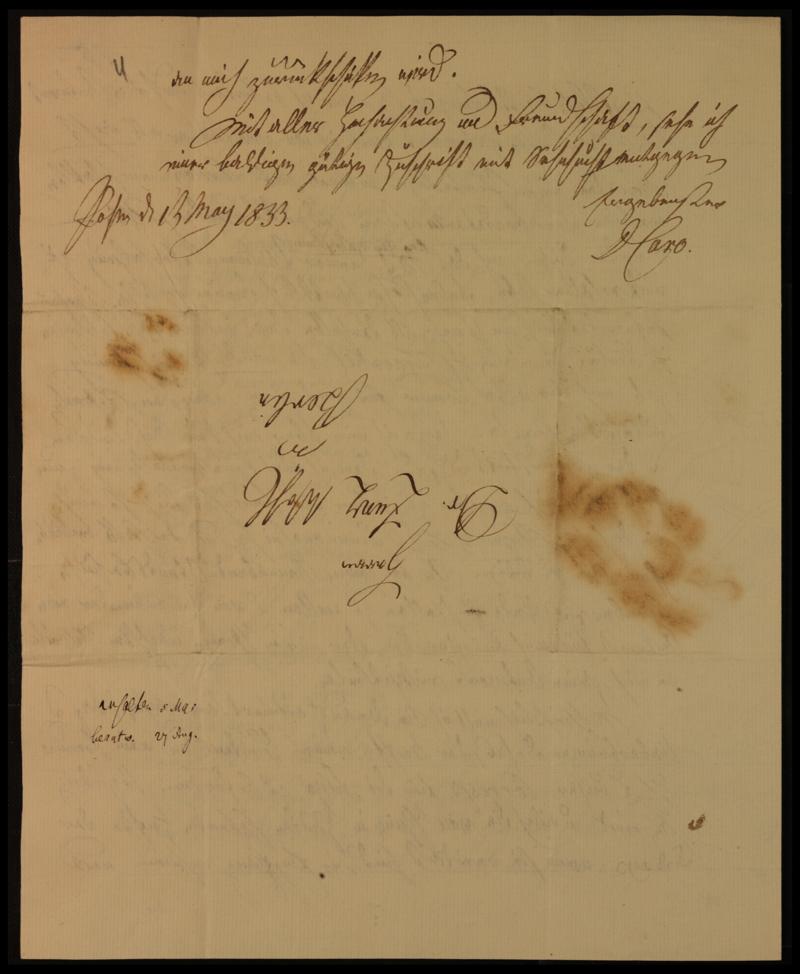 4
an mich zurückschicken wird.
Mit aller Hochachtung und Freundschaft, sehe ich
einer baldigen gütigen Zuschrift mit Sehnsucht entgegen
Posen d 13 May 1833.
Ergebenster
D Caro.
Herrn
Dr. Zunz
in
Berlin
erhalten 8 Mai
beantw. 27 Aug.